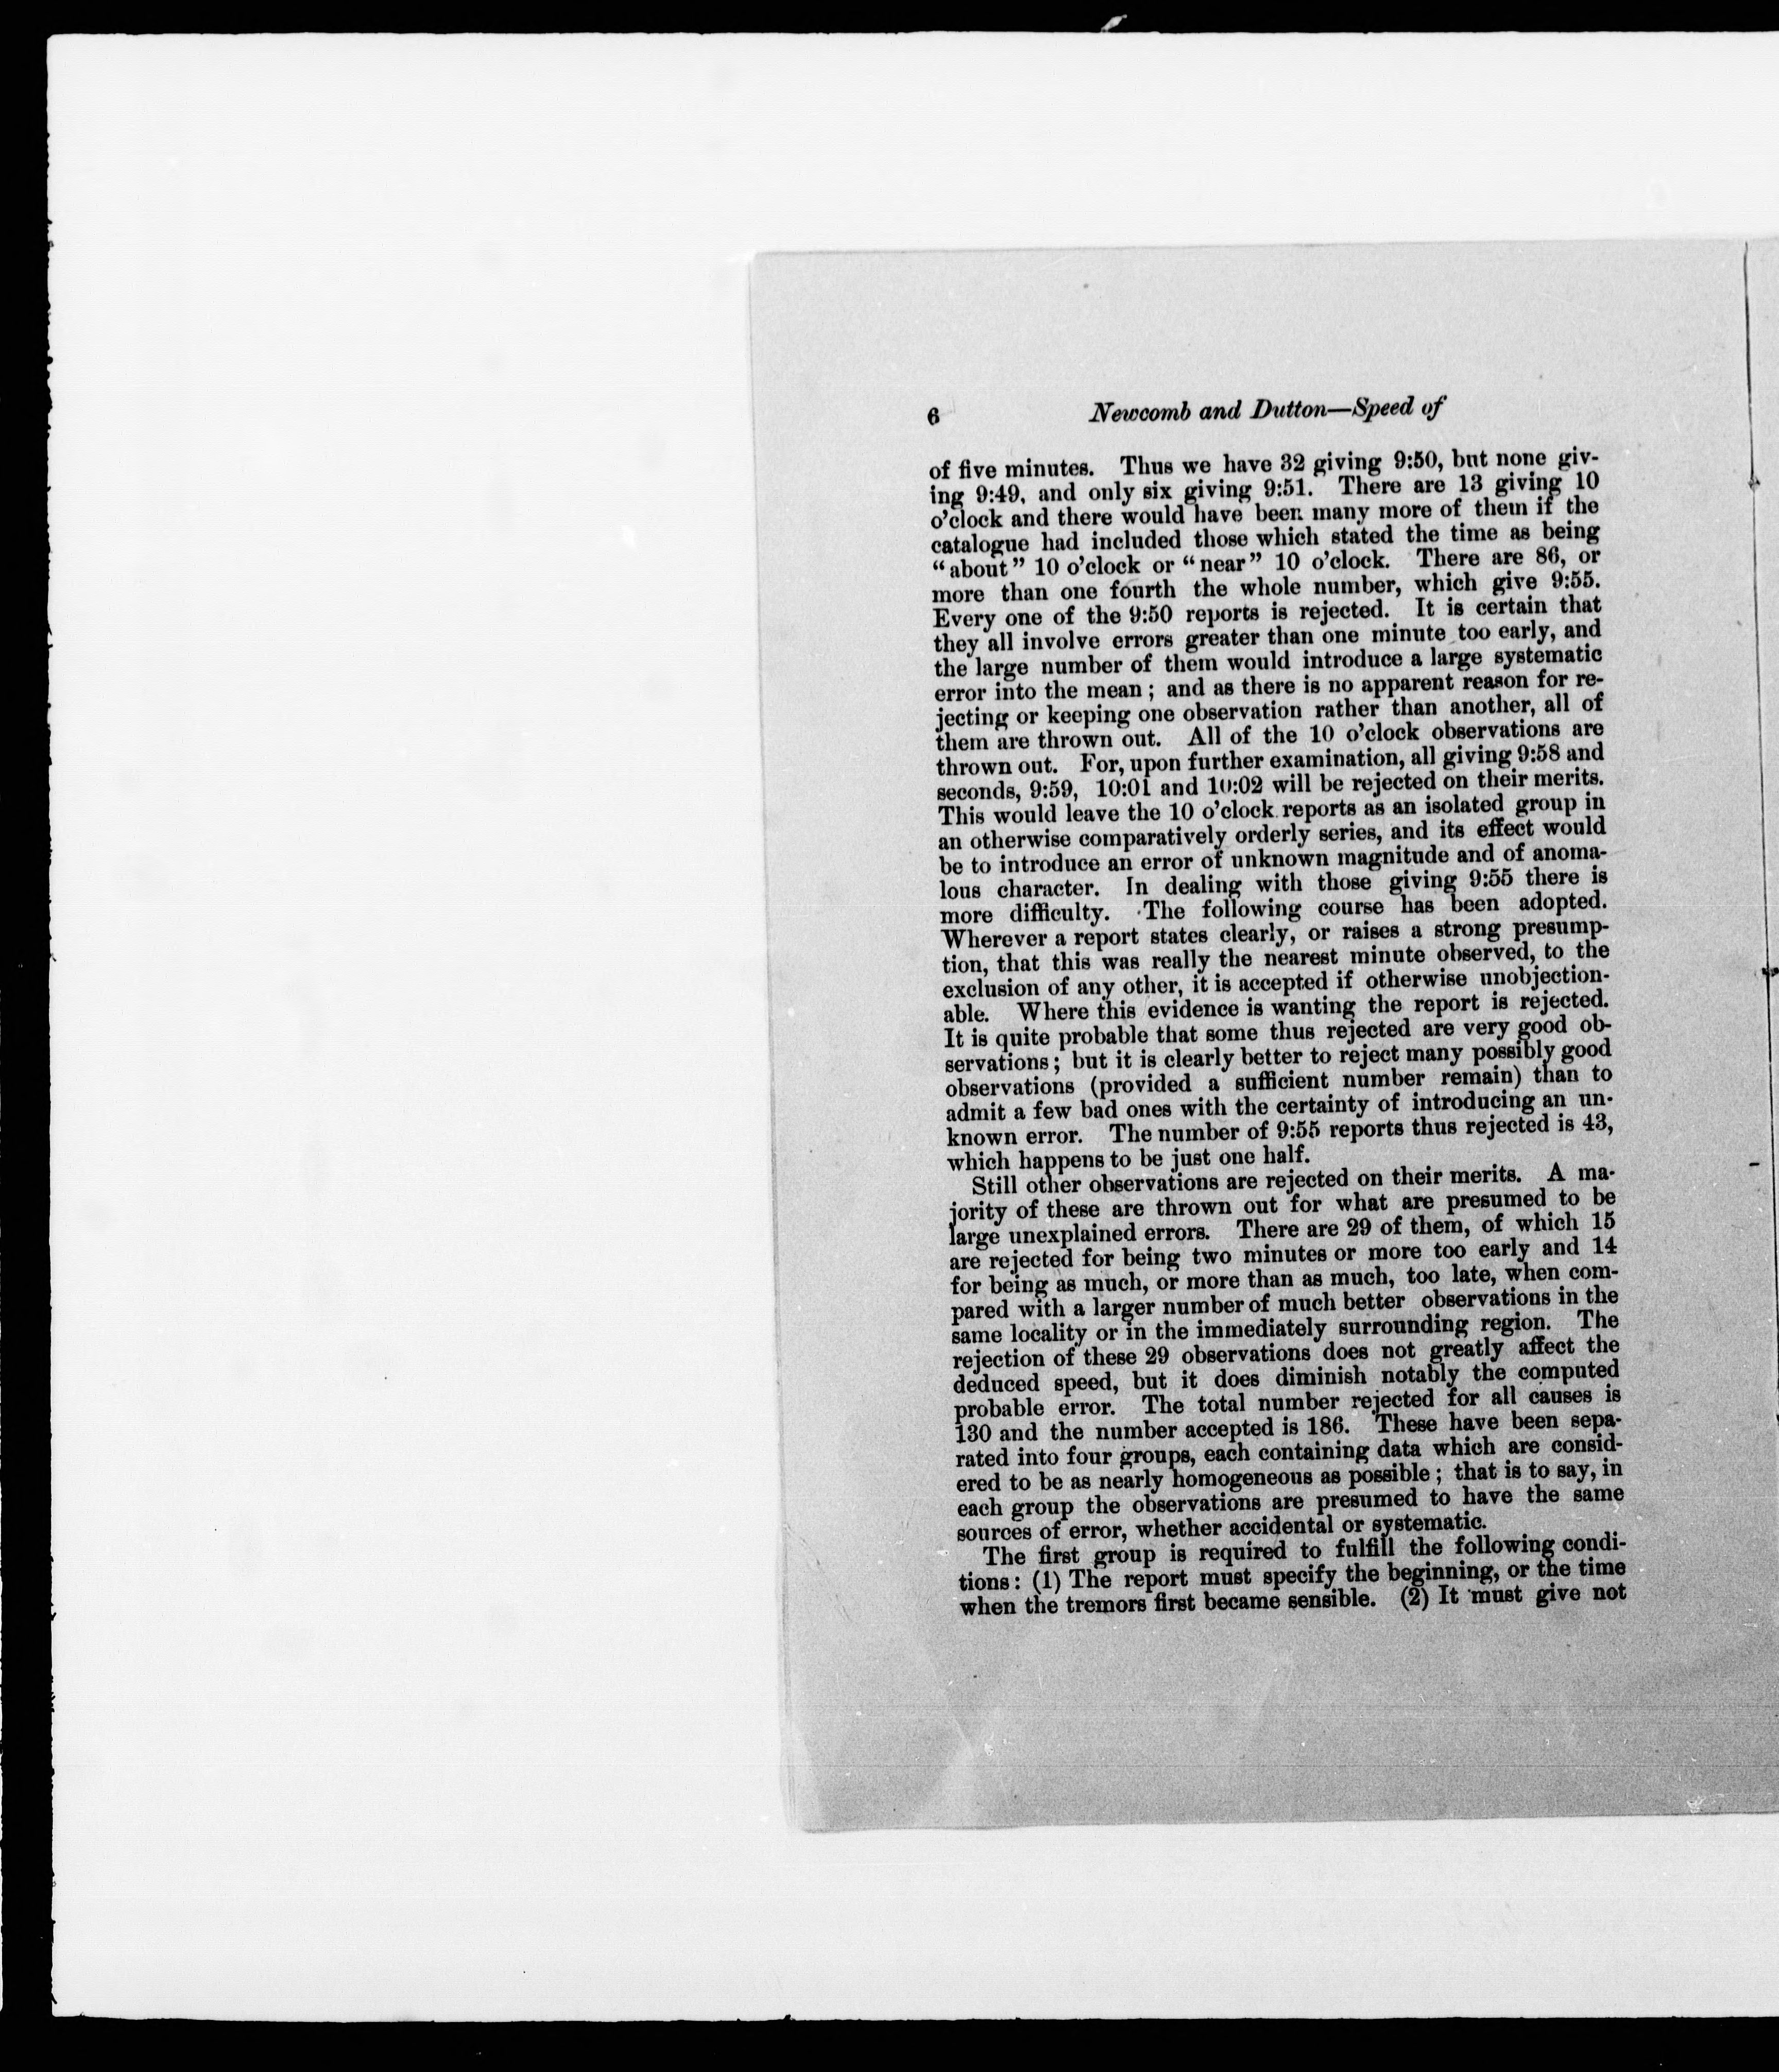 6 Newcomb and Dutton—Speed of
of five minutes. Thus we have 32 giving 9:50, but none giv-
ing 9:49, and only six giving 9:51. There are 13 giving 10
o'clock and there would have been many more of them if the
catalogue had included those which stated the time as being
“about” 10 o'clock or “near” 10 o'clock. There are 86, or
more than one fourth the whole number, which give 9:55.
Every one of the 9:50 reports is rejected. It is certain that
they all involve errors greater than one minute too early, and
the large number of them would introduce a large systematic
error into the mean; and as there is no apparent reason for re-
jecting or keeping one observation rather than another, all of
them are thrown out. All of the 10 o'clock observations are
thrown out. For, upon further examination, all giving 9:58 and
seconds, 9:59, 10:01 and 10:02 will be rejected on their merits.
This would leave the 10 o'clock reports as an isolated group in
an otherwise comparatively orderly series, and its effect would
be to introduce an error of unknown magnitude and of anoma-
lous character. In dealing with those giving 9:55 there is
more difficulty. The following course has been adopted.
Wherever a report states clearly, or raises a strong presump-
tion, that this was really the nearest minute observed, to the
exclusion of any other, it is accepted if otherwise unobjection-
able. Where this evidence is wanting the report is rejected.
It is quite probable that some thus rejected are very good ob-
servations; but it is clearly better to reject many possibly good
observations (provided a sufficient number remain) than to
admit a few bad ones with the certainty of introducing an un-
known error. The number of 9:55 reports thus rejected is 43,
which happens to be just one half.
Still other observations are rejected on their merits. A ma-
jority of these are thrown out for what are presumed to be
large unexplained errors. There are 29 of them, of which 15
are rejected for being two minutes or more too early and 14
for being as much, or more than as much, too late, when com-
pared with a larger number of much better observations in the
same locality or in the immediately surrounding region. The
rejection of these 29 observations does not greatly affect the
deduced speed, but it does diminish notably the computed
probable error. The total number rejected for all causes is
130 and the number accepted is 186. These have been sepa-
rated into four groups, each containing data which are consid-
ered to be as nearly homogeneous as possible; that is to say, in
each group the observations are presumed to have the same
sources of error, whether accidental or systematic.
The first group is required to fulfill the following condi-
tions: (1) The report must specify the beginning, or the time
when the tremors first became sensible. (2) It must give not